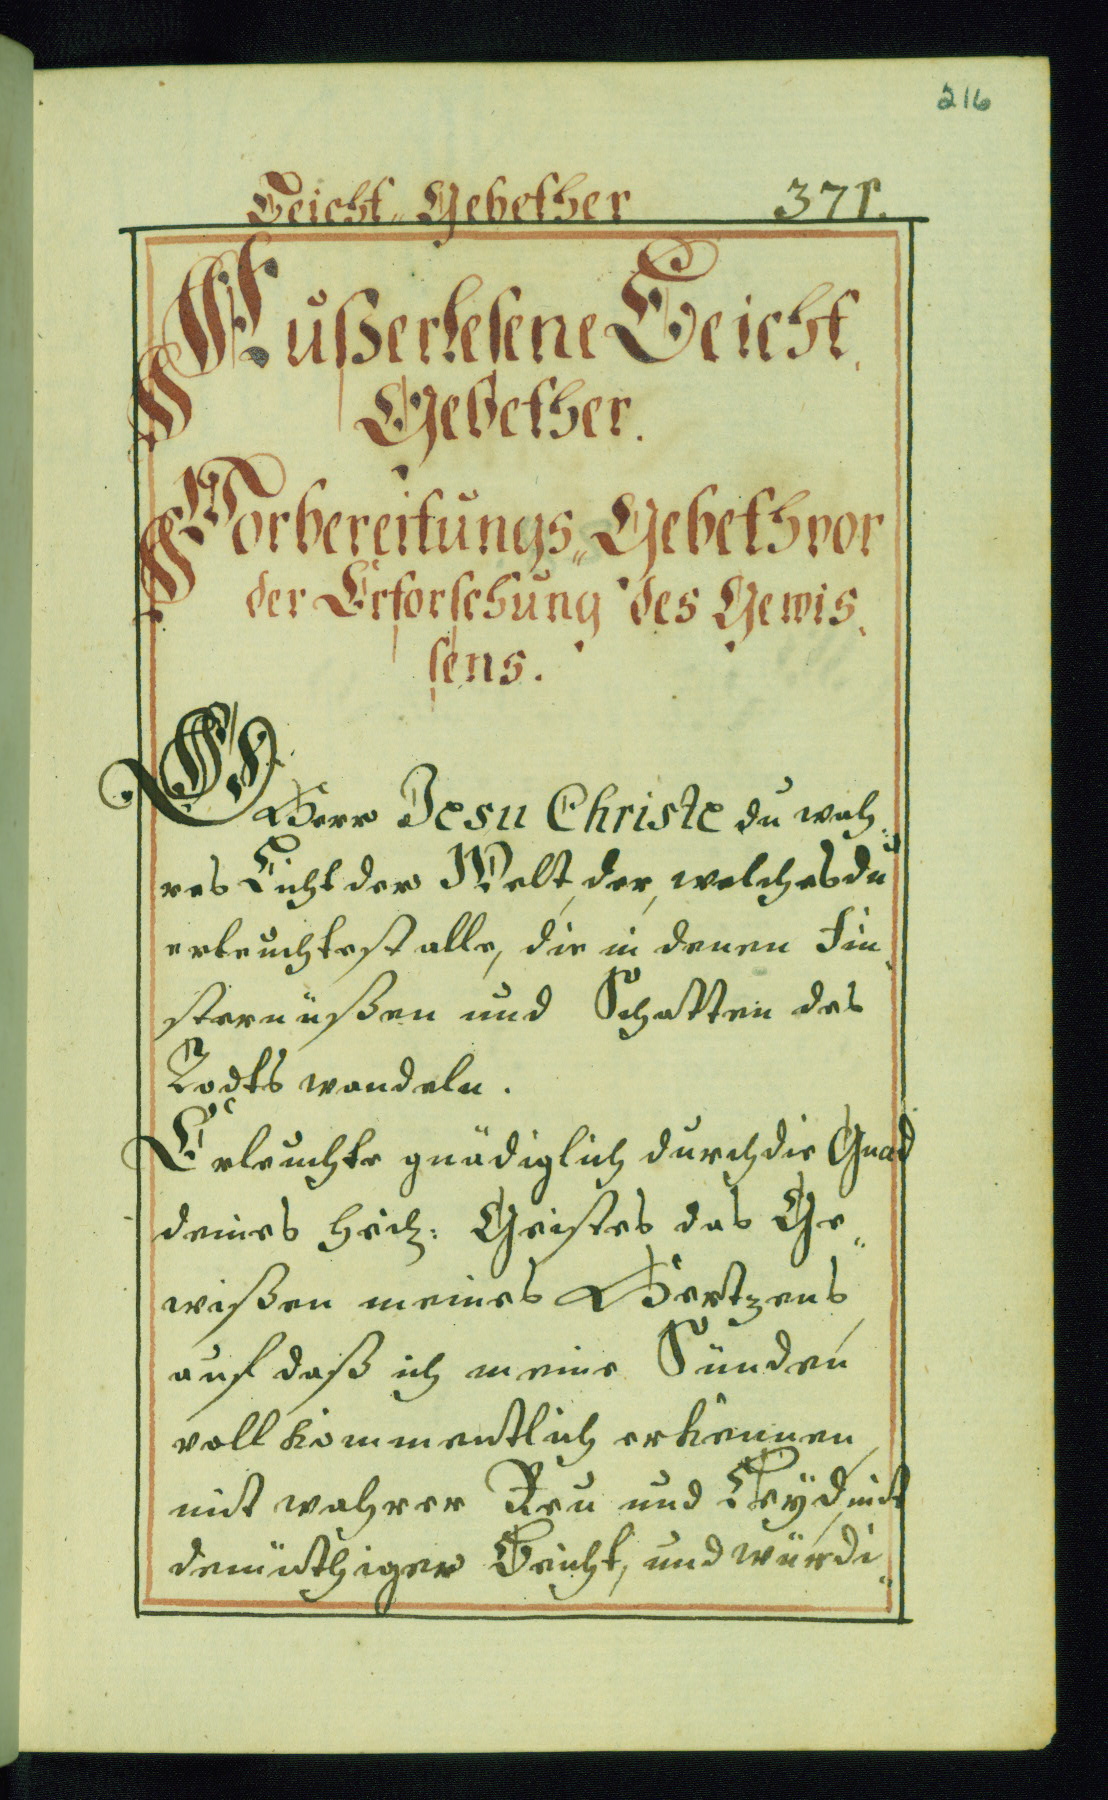 216
Beicht„ Gebether 371.
Außerlesene Beicht„
Gebether.
Vorbereitungs„ Gebeth vor
der Erforschung des Gewis„
sens.
O Herr Jesu Christe du wah„
res Licht der Welt, der, welches du
erleuchtest alle, die in denen Fin„
sternüßen und Schatten des
Todts wandeln.
Erleuchte gnädiglich durch die Gnad
deines heil: Geistes das Ge„
wißen meines Hertzens,
auf daß ich meine Sünden
vollkommentlich erkennen,
mit wahrer Reu und Leyd, mit
demüthiger Beicht, und würdi„